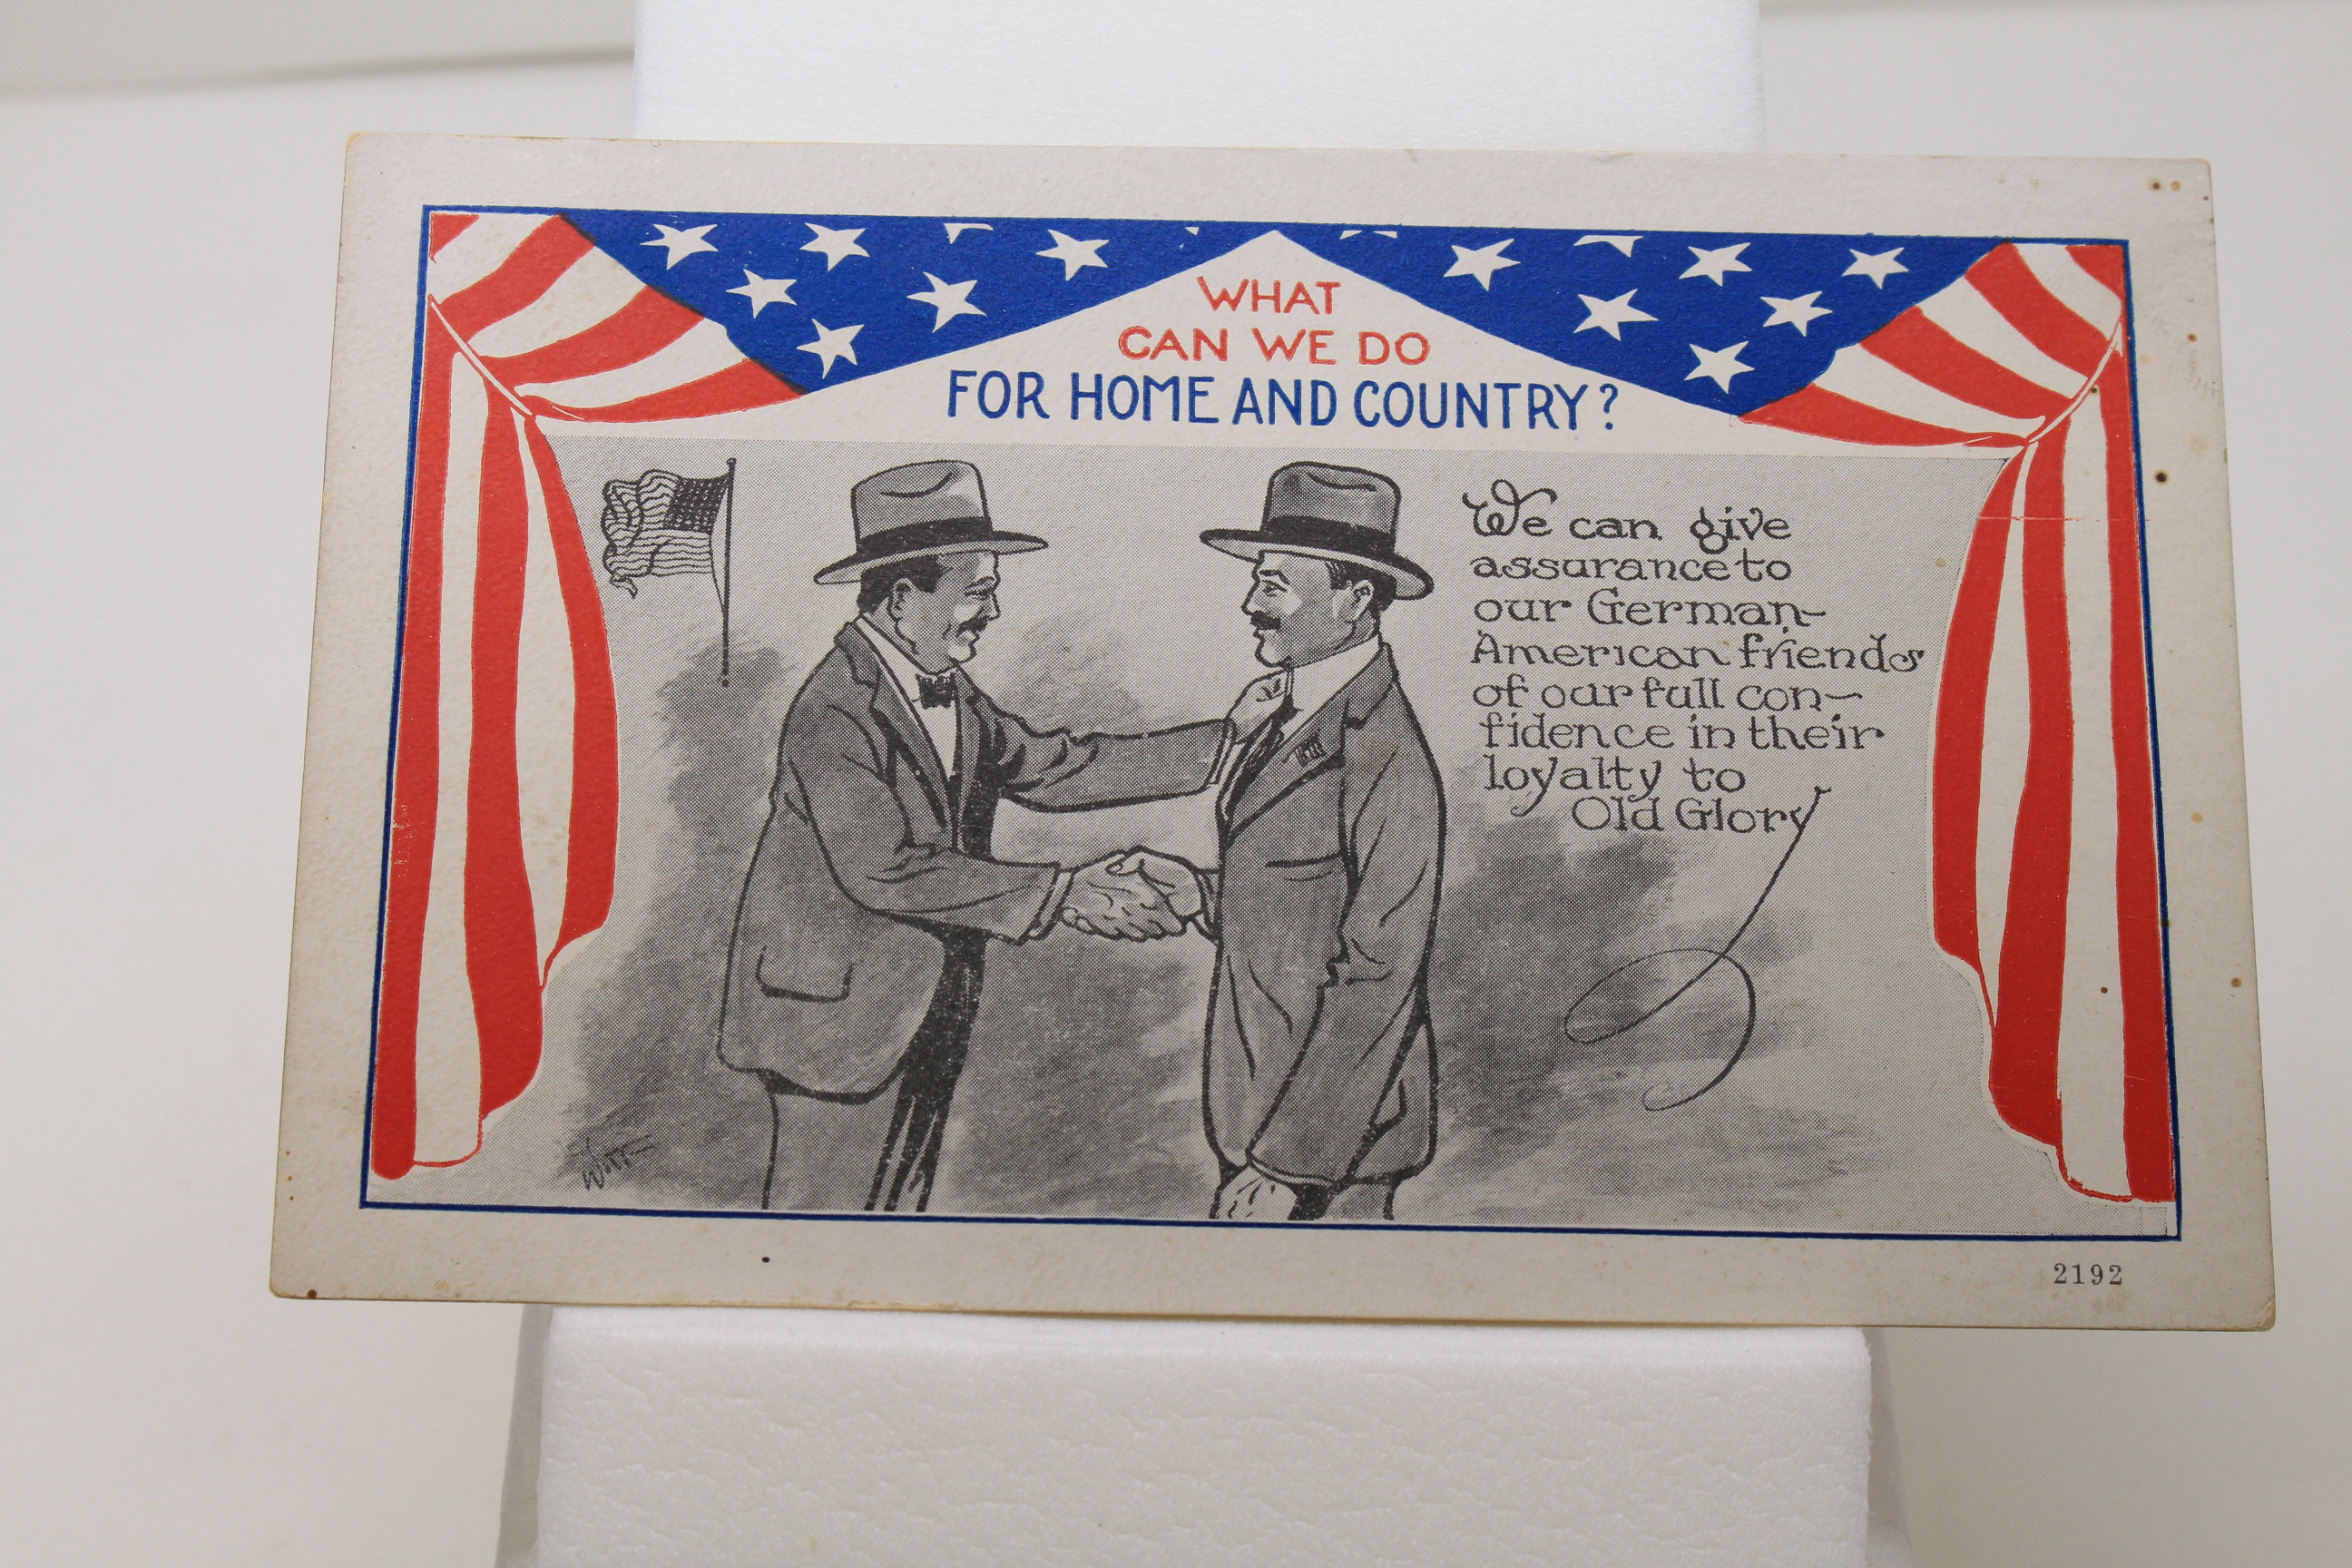 WHAT
CAN WE DO
FOR HOME AND COUNTRY?
We can give
assurance to
our German-
American friends
of our full con-
fidence in their
loyalty to
Old Glory
2192